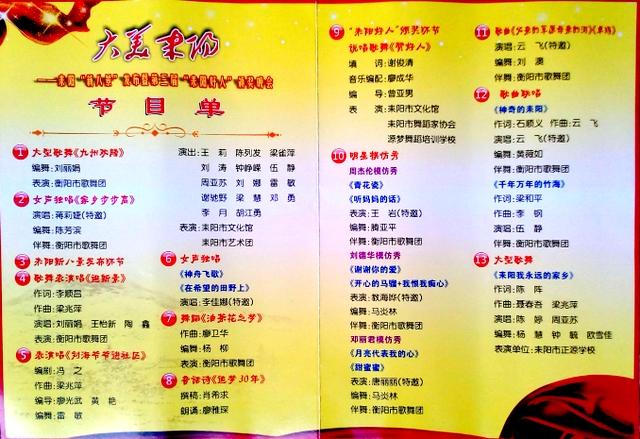 大美耒阳
——耒阳“新八景”发布暨第三届“耒阳好人”颁奖晚会
节目单
1 大型歌舞《九州欢腾》
编舞:刘丽娟
表演:衡阳市歌舞团
2 女声独唱《家乡步步高》
演唱:蒋莉婕(特邀)
编舞:陈芳滨
伴舞:衡阳市歌舞团
3 耒阳新八景发布环节
4 歌舞表演唱《迎新景》
作词:李顺昌
作曲:梁兆萍
演唱:刘丽娟 王怡新 陶鑫
表演:衡阳市歌舞团
5 表演唱《刘海爷爷进社区》
编剧:冯之
作曲:梁兆萍
编导:廖光武 黄艳
编舞:雷敏
演出:王莉 陈列发 梁雀萍
刘涛 钟峥嵘 伍静
周亚苏 刘娜 雷敏
谢驰野 梁慧 邓勇
李月 胡江勇
表演:耒阳市文化馆
耒阳市艺术团
6 女声独唱
《神舟飞歌》
《在希望的田野上》
演唱:李佳娜(特邀)
7 舞蹈《油茶花之梦》
作曲:廖卫华
编舞:杨柳
表演:衡阳市歌舞团
8 音诗诗《追梦30年》
撰稿:肖希求
朗诵:廖雅琛
9 “耒阳好人”颁奖环节
说唱歌舞《赞好人》
填词:谢俊清
音乐编配:廖成华
编导:曾亚男
表演:耒阳市文化馆
耒阳市舞蹈家协会
源梦舞蹈培训学校
10 明星模仿秀
周杰伦模仿秀
《青花瓷》
《听妈妈的话》
表演:王岩(特邀)
编舞:腾亚平
伴舞:衡阳市歌舞团
刘德华模仿秀
《谢谢你的爱》
《开心的马骝+我恨我痴心》
表演:教海烨(特邀)
编舞:马炎林
伴舞:衡阳市歌舞团
邓丽君模仿秀
《月亮代表我的心》
《甜蜜蜜》
表演:唐丽丽(特邀)
编舞:马炎林
伴舞:衡阳市歌舞团
11 歌曲《父亲的草原母亲的河》
演唱:云飞(特邀)
编舞:刘澳
伴舞:衡阳市歌舞团
12 歌曲联唱
《神奇的耒阳》
作词:石顺义 作曲:云飞
演唱:云飞(特邀)
编舞:黄薇如
伴舞:衡阳市歌舞团
《千年万年的竹海》
作词:梁和平
作曲:李钢
演唱:伍静
伴舞:衡阳市歌舞团
13 大型歌舞
《耒阳我永远的家乡》
作词:陈阵
作曲:聂春吾 梁兆萍
演唱:陈婷 周亚苏
编舞:杨慧 钟毓 欧雪佳
表演单位:耒阳市正源学校